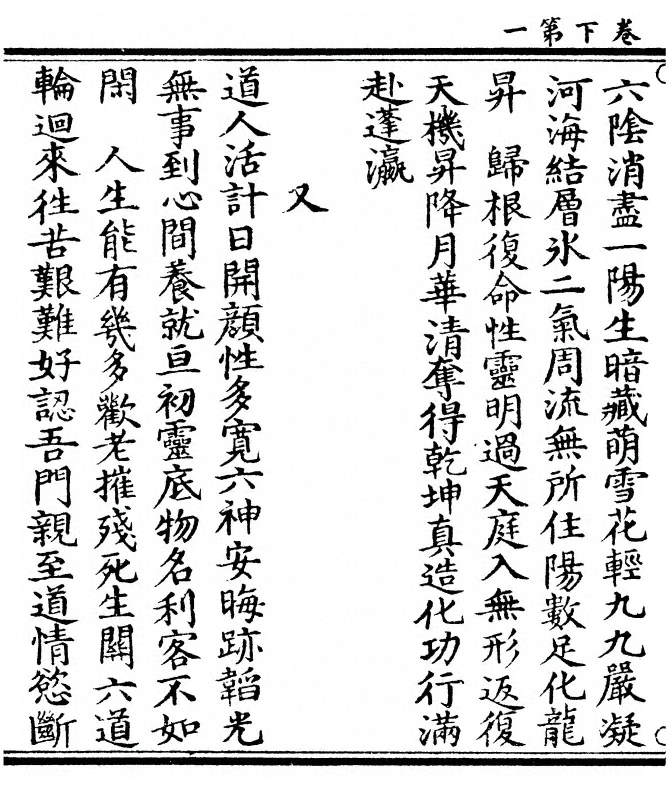 卷下第一
六陰消盡一陽生暗藏萌雪花輕九九嚴凝
河海結層氷二氣周流無所住陽數足化龍
昇　歸根復命性靈明過天庭入無形返復
天機昇降月華清奪得乾坤真造化功行滿
赴蓬瀛
又
道人活計日開顏性多寬六神安晦跡韜光
無事到心間養就亘初靈底物名利客不如
閑　人生能有幾多歡老摧殘死生關六道
輪迴來往苦艱難好認吾門親至道情慾斷